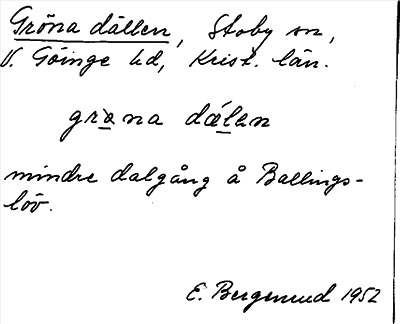 Gröna dällen, Stoby sn,
V. Göinge hd, Krist. län.
grøna dǽlen
mindre dalgång å Ballings-
löv.
E. Bergerud 1952